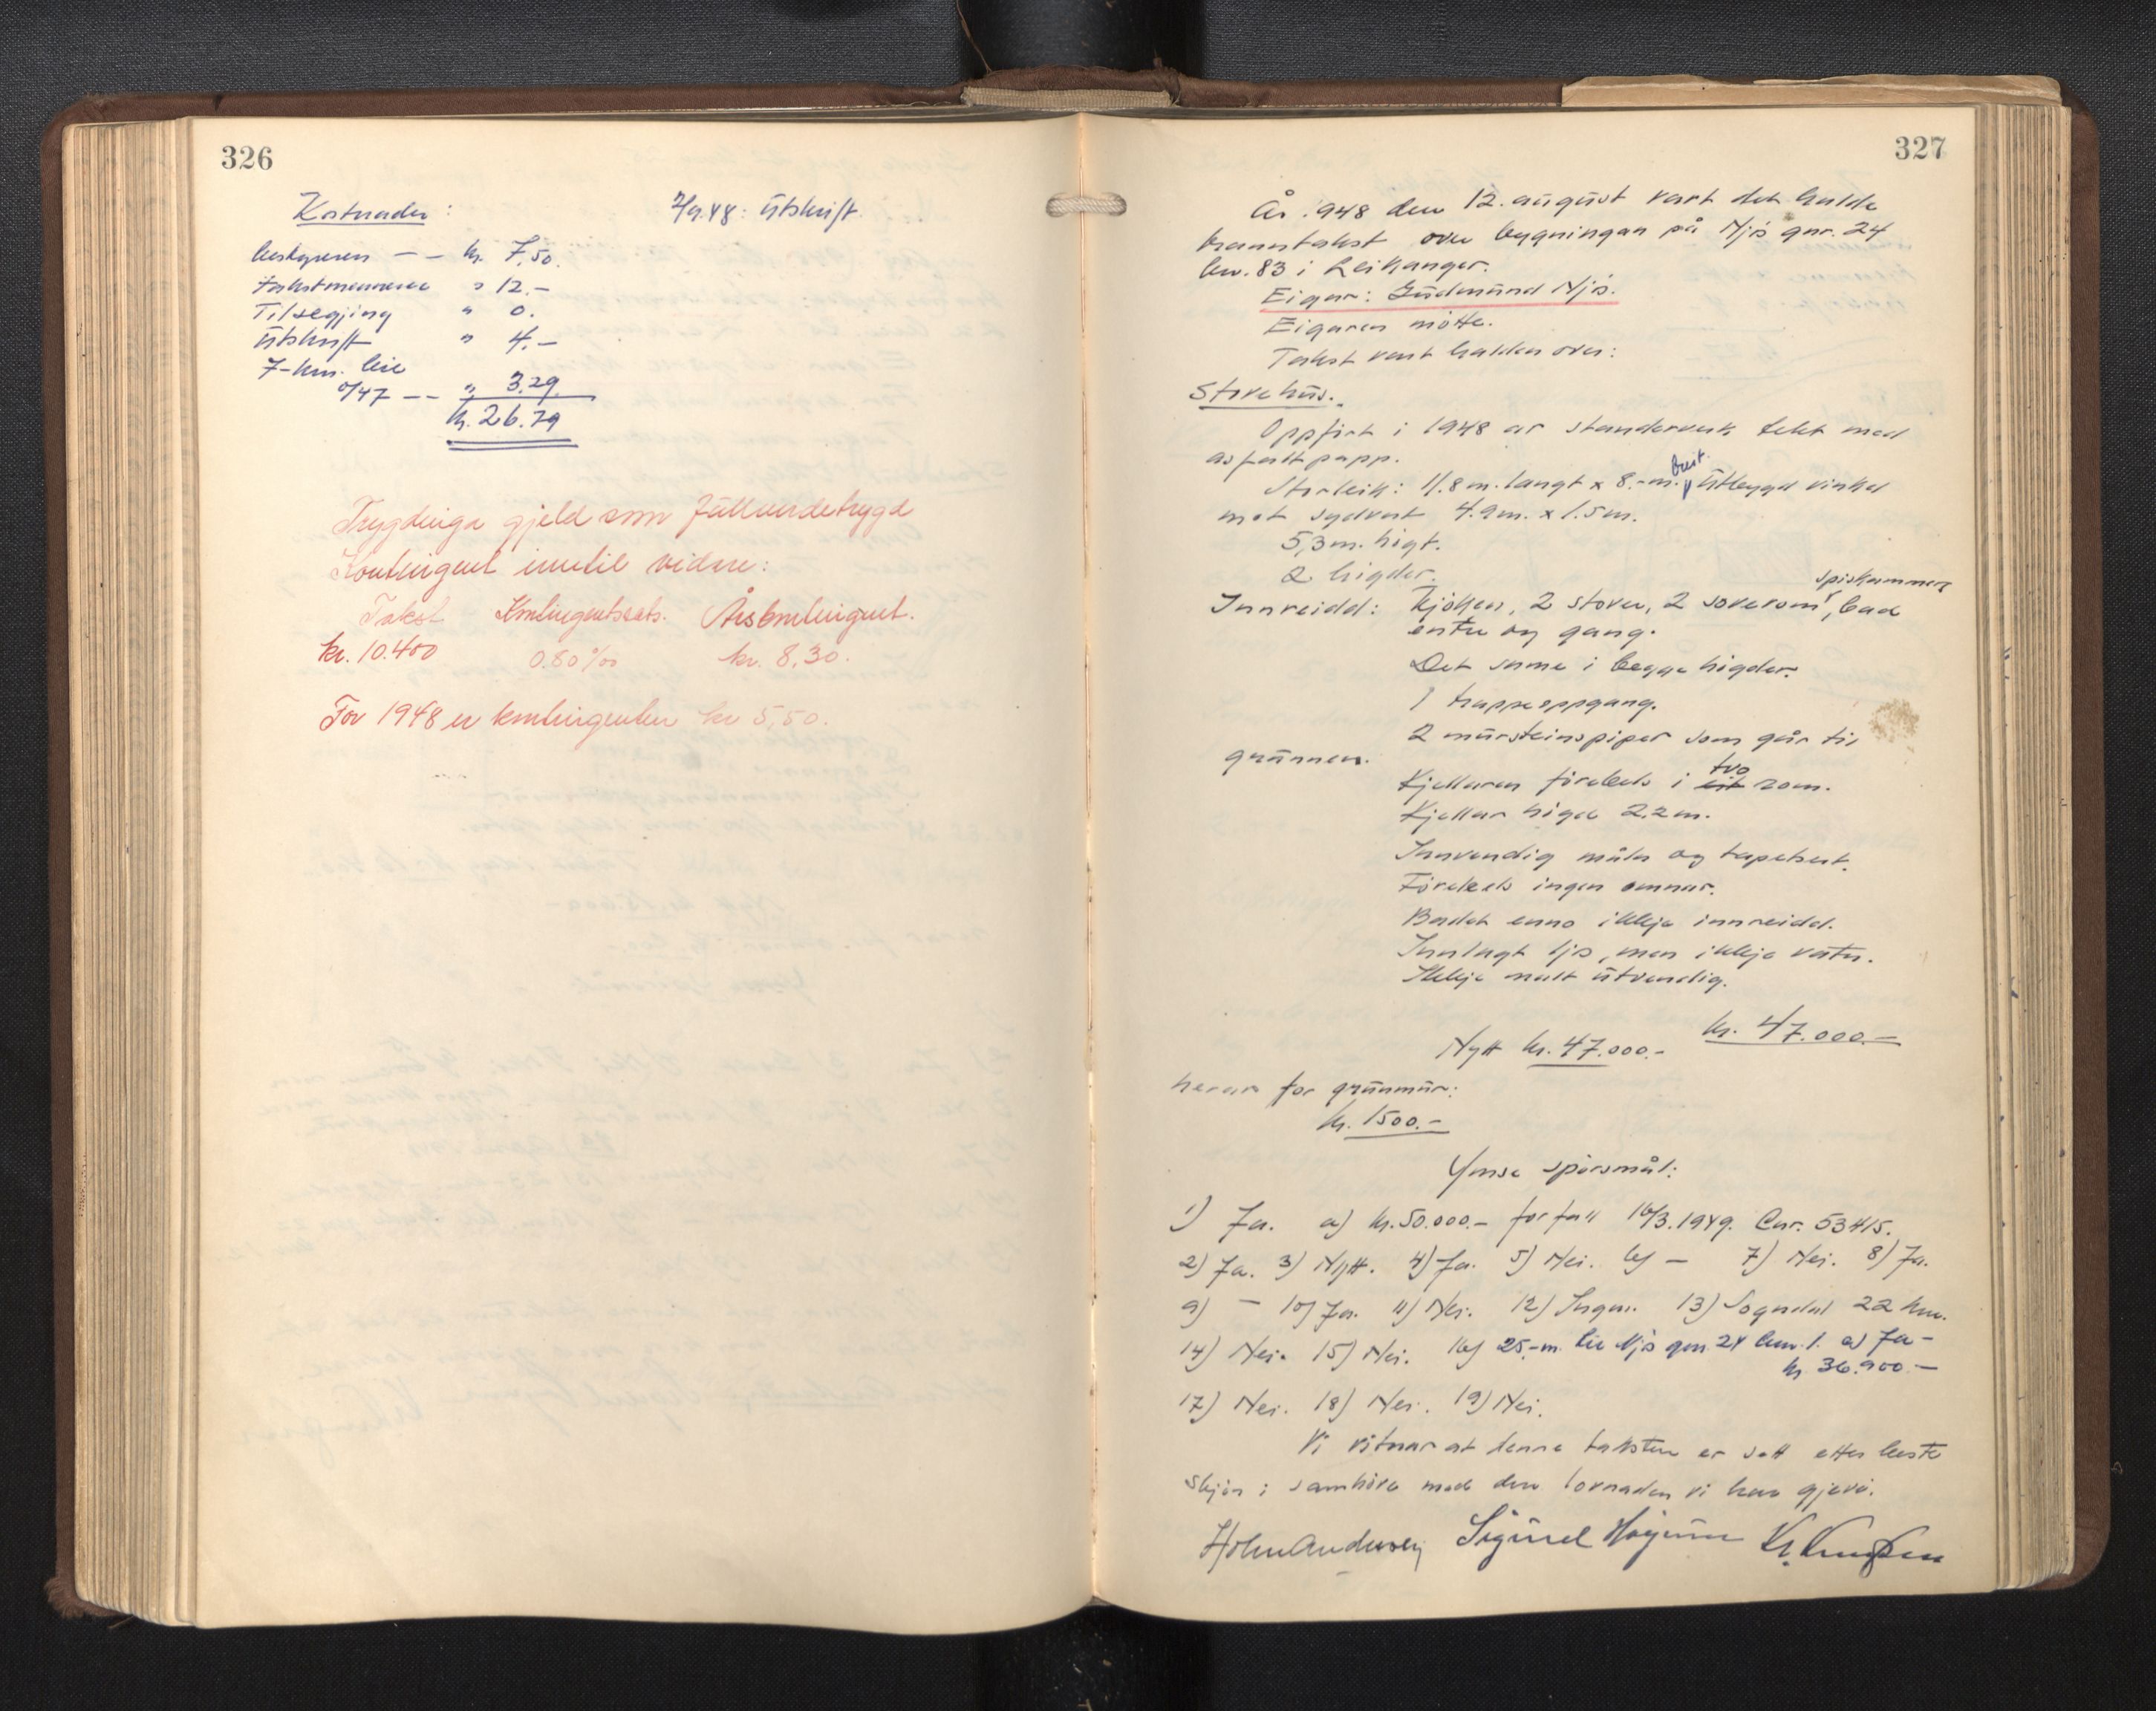 326
Kostnader: 2/9.48: Utskrift.
Bestyreren — — kr. 7,50.
Takstmennene " 12.—
Tilsegjing " 0.
Utskrift " 4.—
7-km. leie
0/47 — — " 3.29
kr. 26.79
Trygdinga gjeld som fullverdetrygd
Kontingent inntil vidare:
Takst Kontingentsats. Årskontingent.
kr. 10.400 0.80 ‰ kr. 8,30.
For 1948 er kontingenten kr 5,50.
327
År 1948 den 12. august vart det halde
branntakst over bygningan på Njøs gnr. 24
bnr. 83 i Leikanger.
Eigar: Gudmund Njøs.
Eigaren møtte.
Takst vart halden over:
Stovehus.
Oppført i 1948 av standerverk tekt med
asfaltpapp.
Storleik: 11.8 m. langt x 8.- m. breit. Utbygd vinkel
mot sydvest 4.9 m. x 1.5 m.
5,3 m. høgt.
2 høgder.
spiskammers
Innreidd: Kjøken, 2 stover, 2 soverom, bad
entre og gang.
Det same i begge høgder.
1 trappeoppgang.
2 mursteinspiper som går til
grunnen.
Kjellaren førebels i eit två rom.
Kjellar høgd 2.2 m.
Innvendig måla og tapetsert.
Førebels ingen omnar.
Badet enno ikkje innreidd.
Innlagt ljos, men ikkje vatn.
Ikkje malt utvendig.
kr. 47.000.—
Nytt kr. 47.000.-
herav for grunnmur:
kr. 1500.—
Ymse spørsmål:
1) Ja. a) kr. 50.000.— forfall 16/3.1949. Cnr. 53415.
2) Ja. 3) Nytt. 4) Ja. 5) Nei. 6) — 7) Nei. 8) Ja.
9) — 10) Ja. 11) Nei. 12) Ingen. 13) Sogndal 22 km.
14) Nei. 15) Nei. 16) 25.-m. til Njøs gnr. 24 bnr. 1. a) Ja —
kr. 36.900.—
17) Nei. 18) Nei. 19) Nei.
Vi vitnar at denne taksten er sett etter beste
skjøn i samhøve med den lovnaden vi har gjeve.
Holm Andersen Sigurd Høgum Kr. Knudsen